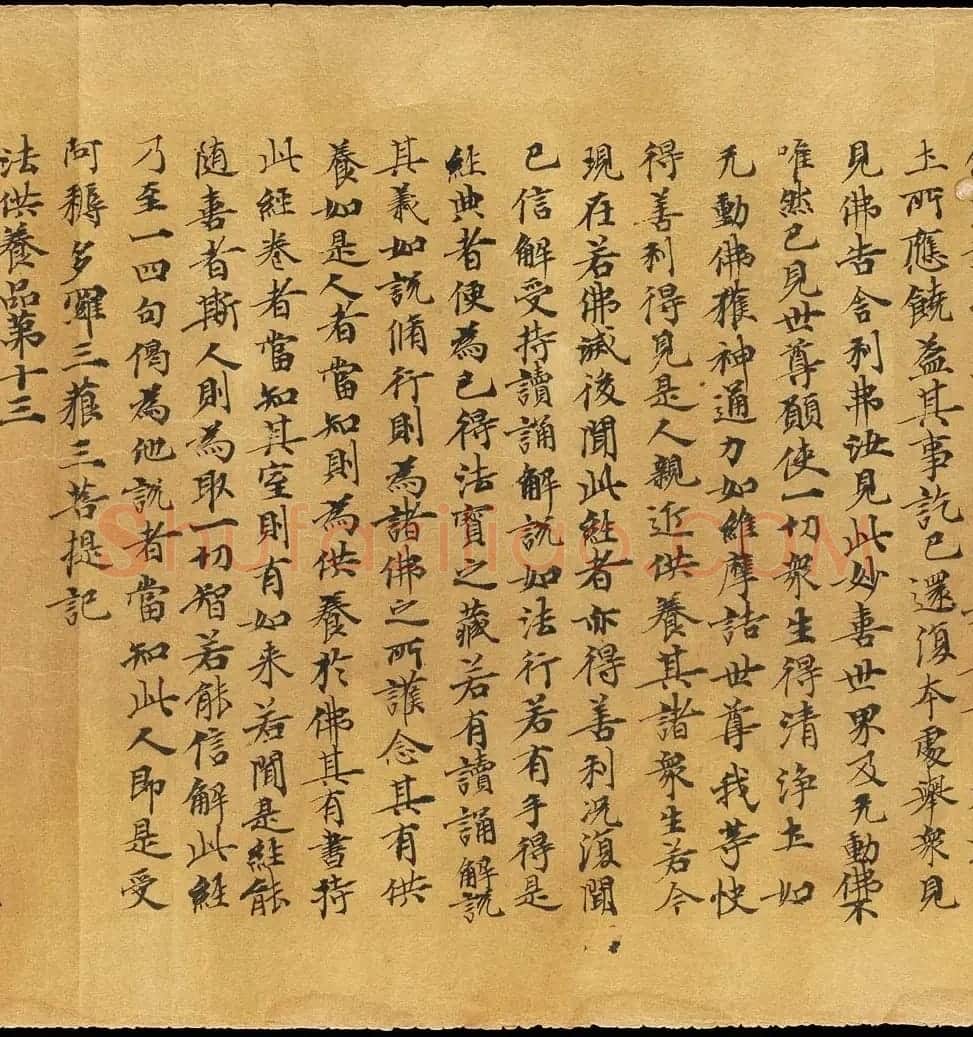 土所應饒益其事訖已還復本處舉衆見
見佛告舍利弗汝見此妙喜世界及无動佛不
唯然已見世尊願使一切衆生得清淨土如
无動佛獲神通力如維摩詰世尊我等快
得善利得見是人親近供養其諸衆生若今
現在若佛滅後聞此經者亦得善利況復聞
已信解受持讀誦解說如法行若有手得是
經典者便為已得法寶之藏若有讀誦解說
其義如說脩行則為諸佛之所護念其有供
養如是人者當知則為供養於佛其有書持
此經卷者當知其室則有如来若聞是經能
随喜者斯人則為取一切智若能信解此經
乃至一四句偈為他說者當知此人即是受
阿耨多羅三藐三菩提記
法供養品第十三
Shufaziliao.COM